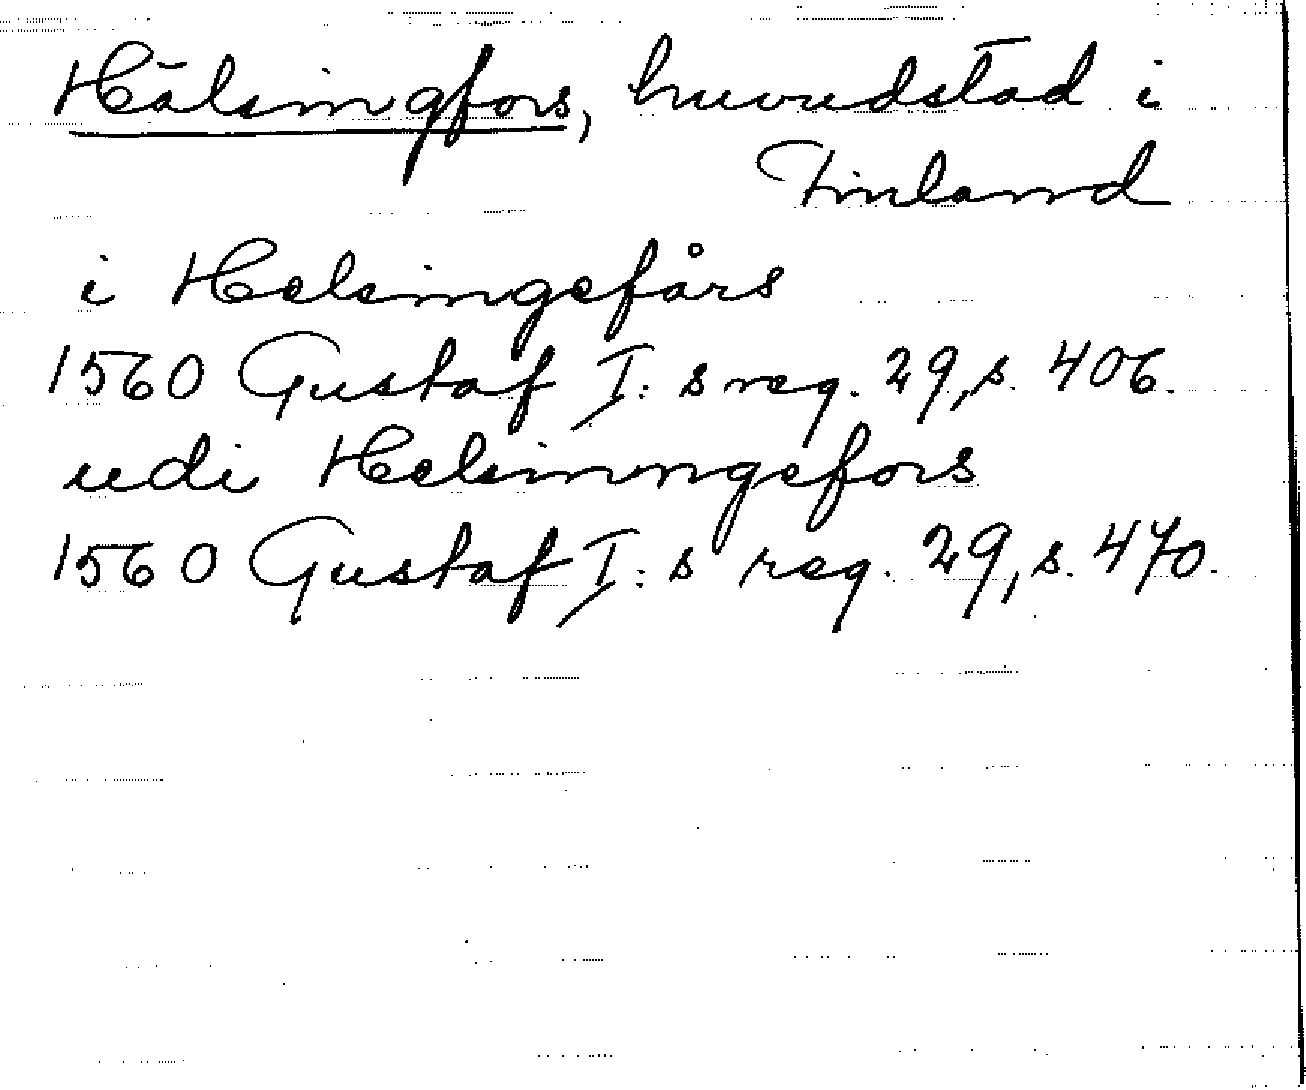 Hälsingfors, huvudstad i
Finland
i Helsingefårs
1560 Gustaf I:s reg. 29, s. 406.
udi Helsinngefors
1560 Gustaf I:s reg. 29, s. 470.